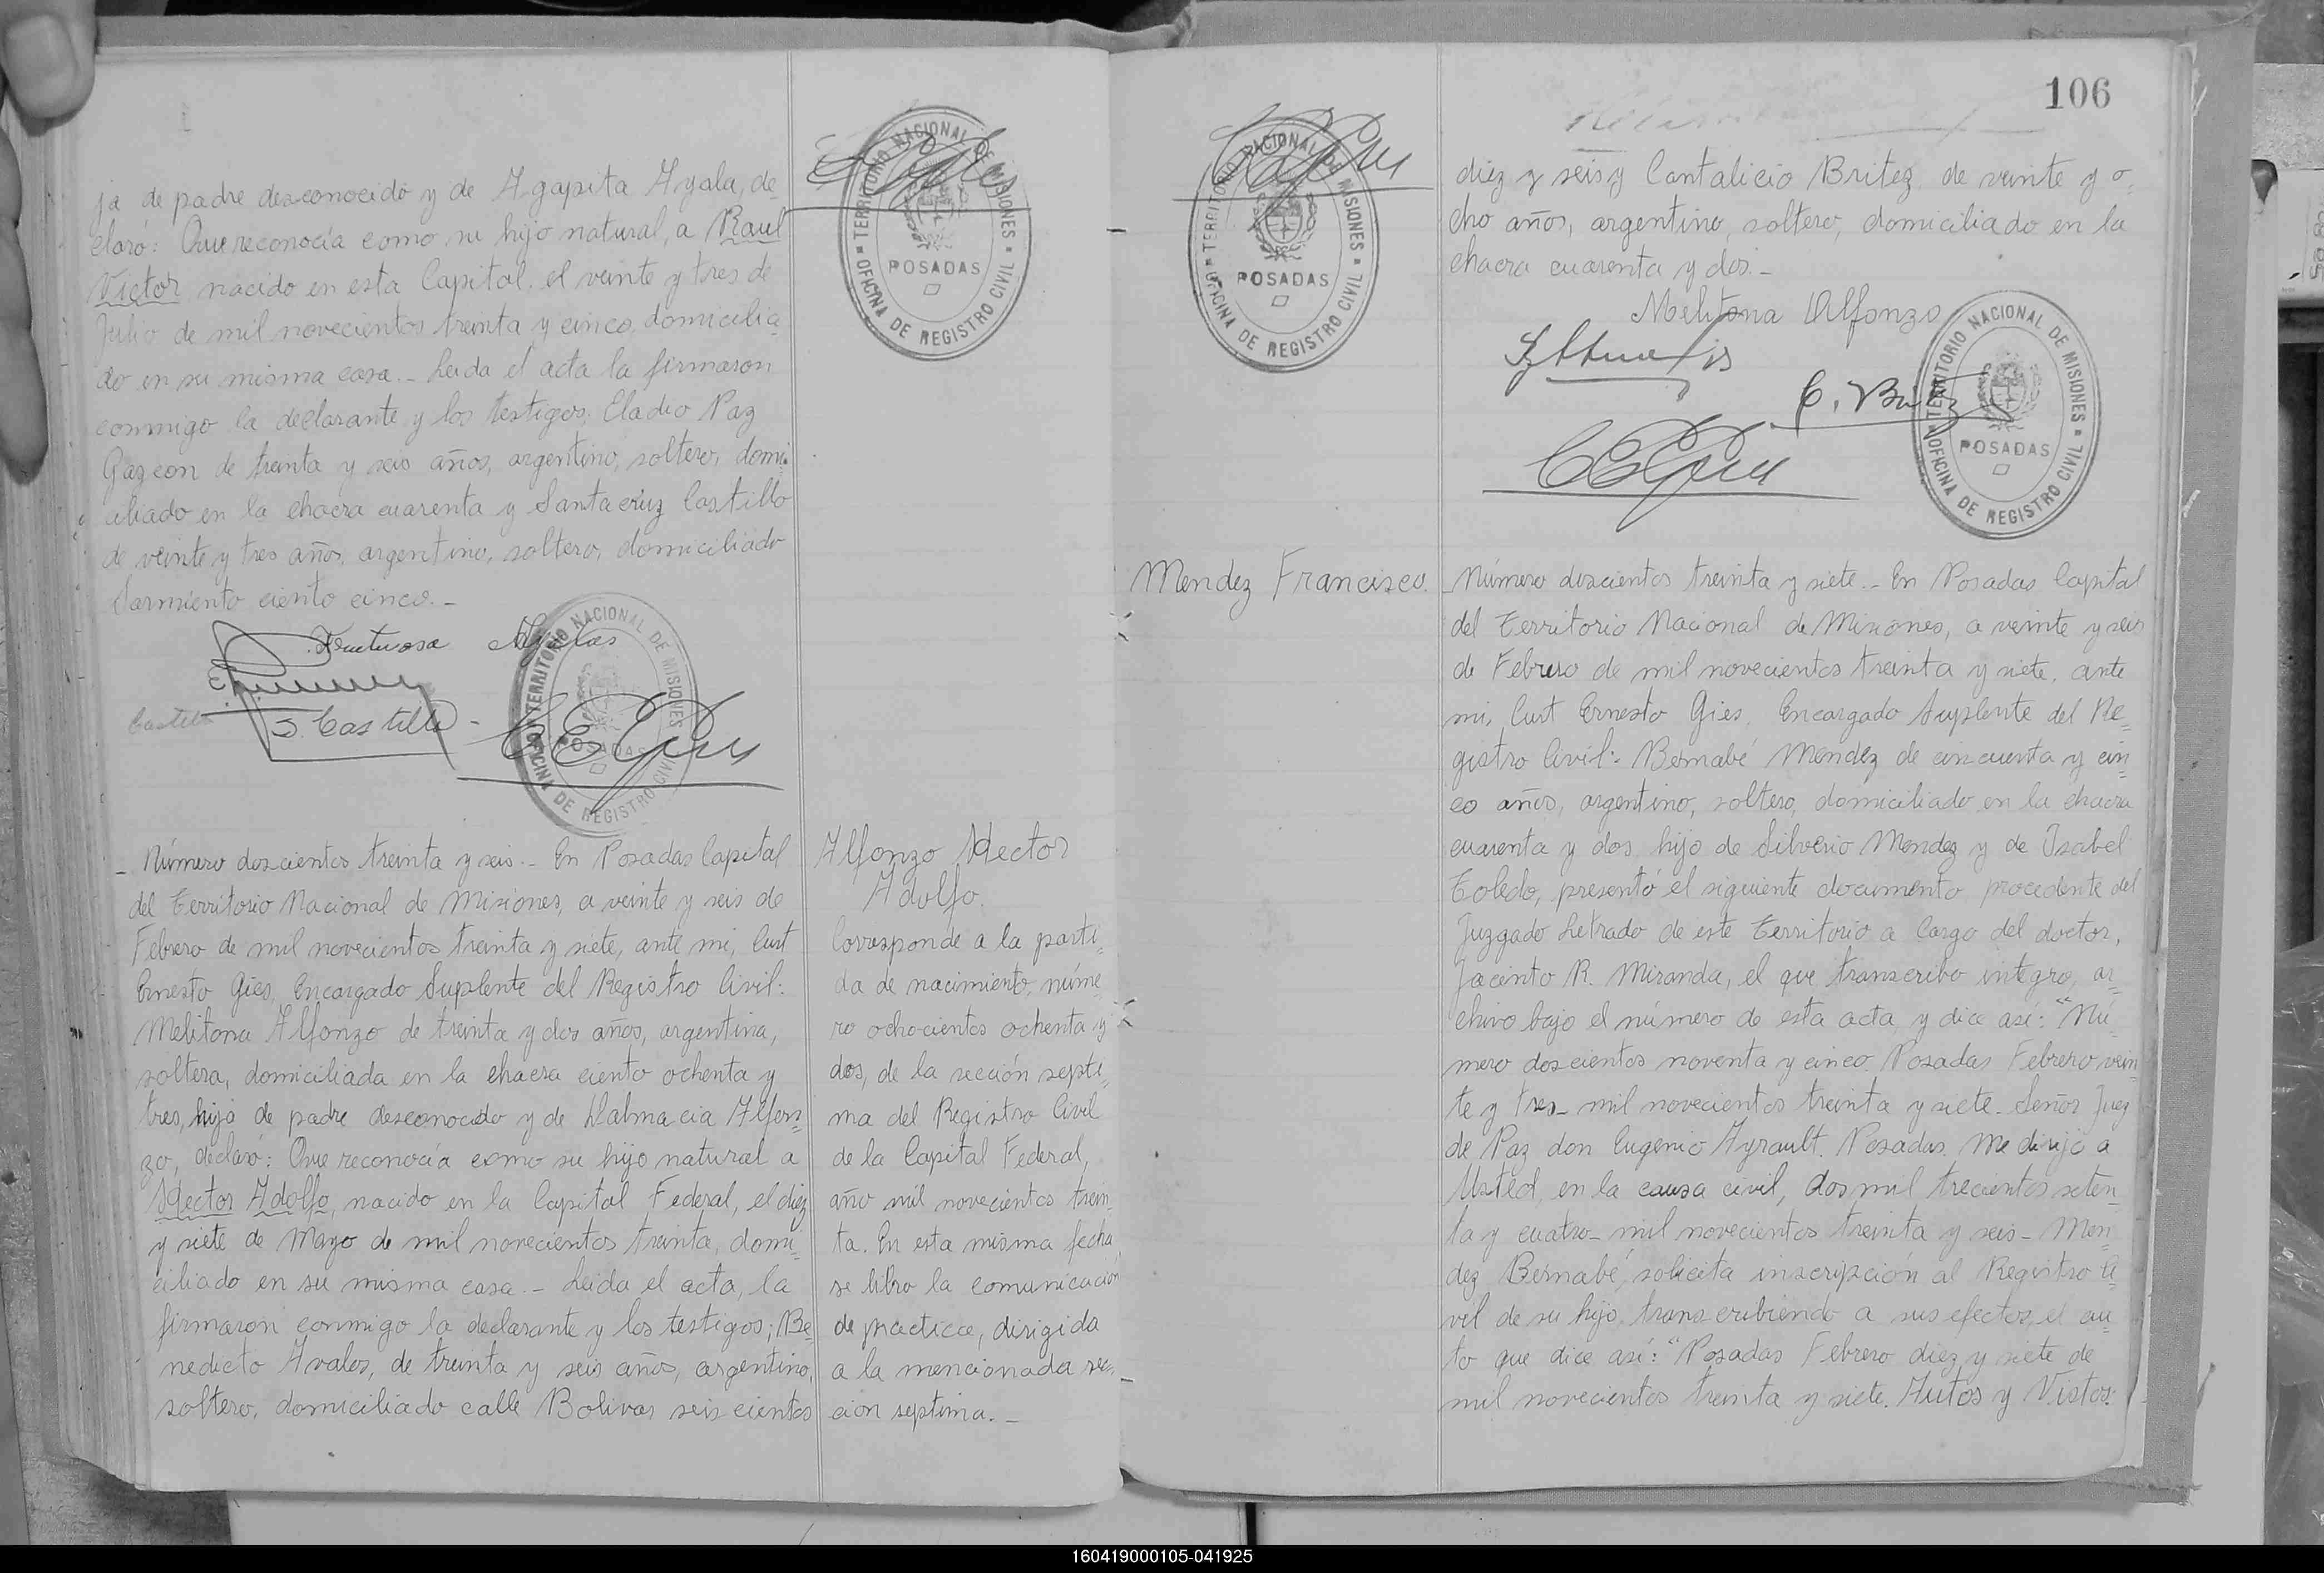 ja de padre desconocido y de Agapita Ayala, de-
claró: Que reconocía como su hijo natural, a Raul
Victor nacido en esta Capital, el veinte y tres de
Julio de mil novecientos treinta y cinco, domicilia-
do en su misma casa.- Leida el acta la firmaron
conmigo la declarante y los testigos; Eladio Paz
de treinta y seis años, argentino, soltero, domi-
ciliado en la chacra cuarenta y Santacruz Castillo
de veinte y tres años, argentino, soltero, domiciliado
Sarmiento ciento cinco.-
Fructuosa Ayala
Castillo
S. Castillo -
TERRITORIO NACIONAL DE MISIONES
POSADAS
OFICINA DE REGISTRO CIVIL
- Número doscientos treinta y seis.- En Posadas Capital
del Territorio Nacional de Misiones, a veinte y seis de
Febrero de mil novecientos treinta y siete, ante mi, Curt
Ernesto Gies, Encargado Suplente del Registro Civil:
Melitona Alfonzo de treinta y dos años, argentina,
soltera, domiciliada en la chacra ciento ochenta y
tres, hija de padre desconocido y de Dalmacia Alfon-
zo, declaró: Que reconocía como su hijo natural a
Hector Adolfo, nacido en la Capital Federal, el diez
y siete de Mayo de mil novecientos treinta, domi-
ciliado en su misma casa.- Leida el acta, la
firmaron conmigo la declarante y los testigos; Be-
nedicto Avalos, de treinta y seis años, argentino,
soltero, domiciliado calle Bolivar seis cientos
TERRITORIO NACIONAL DE MISIONES
POSADAS
OFICINA DE REGISTRO CIVIL
Alfonzo Hector
Adolfo.
Corresponde a la parti-
da de nacimiento, núme-
ro ochocientos ochenta y
dos, de la sección septi-
ma del Registro Civil
de la Capital Federal,
año mil novecientos trein-
ta. En esta misma fecha
se libro la comunicación
de practica, dirigida
a la mencionada sec-
ción septima.-
TERRITORIO NACIONAL DE MISIONES
POSADAS
OFICINA DE REGISTRO CIVIL
Mendez Francisco.
106
diez y seis y Cantalicio Britez de veinte y o-
cho años, argentino, soltero, domiciliado en la
chacra cuarenta y dos.-
Melitona Alfonzo
C. Britez
TERRITORIO NACIONAL DE MISIONES
POSADAS
OFICINA DE REGISTRO CIVIL
- Número doscientos treinta y siete.- En Posadas Capital
del Territorio Nacional de Misiones, a veinte y seis
de Febrero de mil novecientos treinta y siete, ante
mi, Curt Ernesto Gies, Encargado Suplente del Re-
gistro Civil: Bernabé Mendez de cincuenta y cin-
co años, argentino, soltero, domiciliado en la chacra
cuarenta y dos hijo de Silverio Mendez y de Isabel
Toledo, presentó el siguiente documento procedente del
Juzgado Letrado de este Territorio a cargo del doctor,
Jacinto R. Miranda, el que transcribo integro, ar-
chivo bajo el número de esta acta y dice así: "Nú-
mero doscientos noventa y cinco. Posadas Febrero vein-
te y tres- mil novecientos treinta y siete- Señor Juez
de Paz don Eugenio Ayrault. Posadas. Me dirijo a
Usted, en la causa civil, dos mil trecientos seten-
ta y cuatro- mil novecientos treinta y seis- Men-
dez Bernabé, solicita inscripción al Registro Ci-
vil de su hijo, transcribiendo a sus efectos, el au-
to que dice así: "Posadas Febrero diez y siete de
mil novecientos treinta y siete. Autos y Vistos:
160419000105-041925